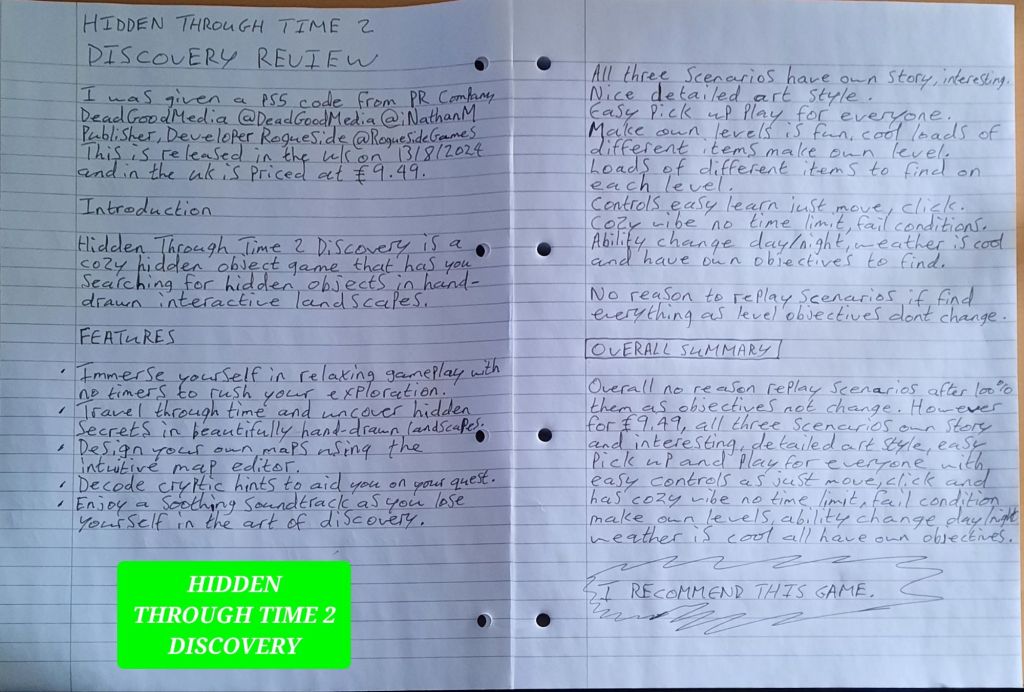 HIDDEN THROUGH TIME 2
DISCOVERY REVIEW
I was given a PS5 code from PR Company
DeadGoodMedia @DeadGoodMedia @iNathanM
Publisher, Developer RogueSide @RogueSideGames
This is released in the uk on 13/8/2024
and in the uk is priced at £9.49.
Introduction
Hidden Through Time 2 Discovery is a
cozy hidden object game that has you
searching for hidden objects in hand-
drawn interactive landscapes.
FEATURES
• Immerse yourself in relaxing gameplay with
no timers to rush your exploration.
• Travel through time and uncover hidden
secrets in beautifully hand-drawn landscapes.
• Design your own maps using the
intuitive map editor.
• Decode cryptic hints to aid you on your quest.
• Enjoy a soothing soundtrack as you lose
yourself in the art of discovery.
HIDDEN
THROUGH TIME 2
DISCOVERY
All three scenarios have own story, interesting.
Nice detailed art style.
Easy pick up play for everyone.
Make own levels is fun, cool loads of
different items make own level.
Loads of different items to find on
each level.
Controls easy learn just move, click.
Cozy vibe no time limit, fail conditions.
Ability change day/night, weather is cool
and have own objectives to find.
No reason to replay scenarios if find
everything as level objectives dont change.
OVERALL SUMMARY
Overall no reason replay scenarios after 100%
them as objectives not change. However
for £9.49, all three scenarios own story
and interesting, detailed art style, easy
pick up and play for everyone with
easy controls as just move, click and
has cozy vibe no time limit, fail condition,
make own levels, ability change day/night
weather is cool all have own objectives.
I RECOMMEND THIS GAME.